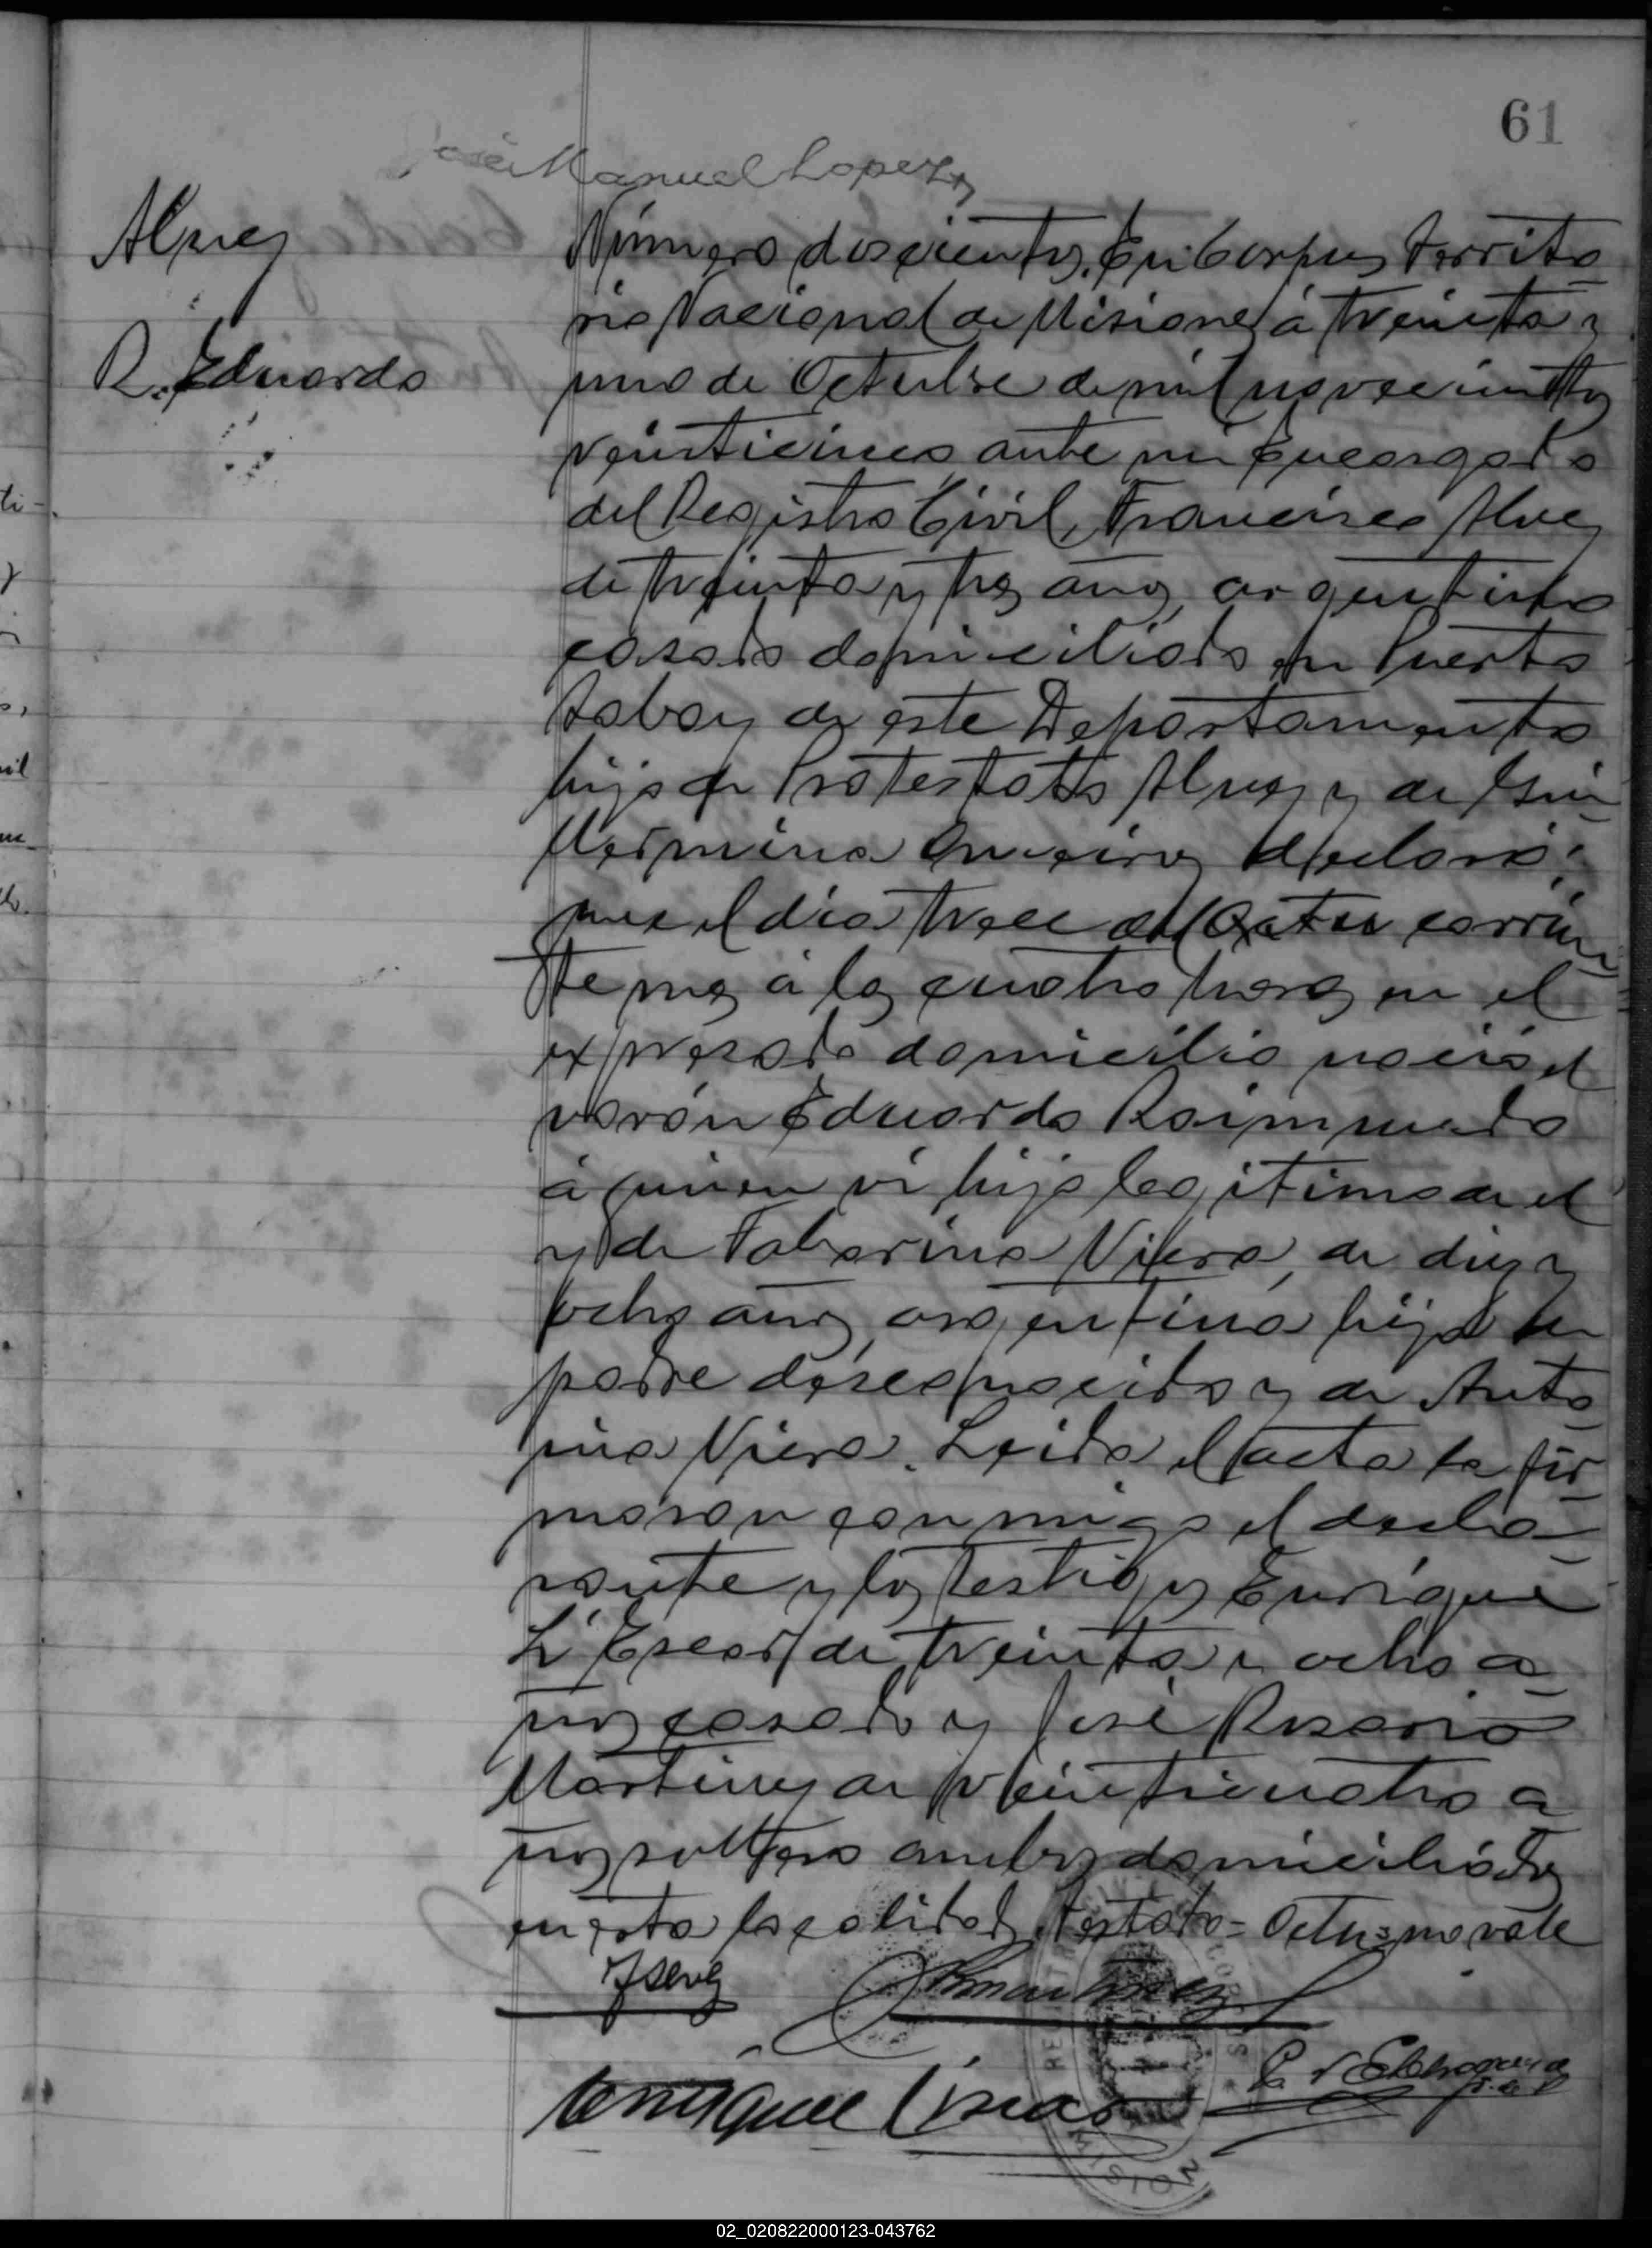 61
José Manuel Lopez
Alvez
R. Eduardo
Número doscientos. En Corpus Territo
rio Nacional de Misiones á treinta y
uno de Octubre de mil novecientos
veinticinco ante mi Encargado
del Registro Civil, Francisco Alvez
de treinta y tres años, argentino
casado domiciliado en Puerto
Tabay de este Departamento
hijo de Alvez y de Gui
llermina declaró:
que el dia trece del Octu corrien
te mes á las cuatro horas en el
expresado domicilio nació el
varón Eduardo Raimundo
á quien vi hijo legitimo de el
y de Viera, de diez y
ocho años, argentina hija de
padre desconocido y de Anto
nia Viera. Leida el acta la fir
maron conmigo el decla
rante y los testigos Enrique
L'Escar de treinta y ocho a
ños casado y José Rosario
Martinez de veinticuatro a
ños soltero ambos domiciliados
en esta localidad, testado = Octu = no vale
Enrique
REGISTRO
CORPUS
MISIONES
02_020822000123-043762